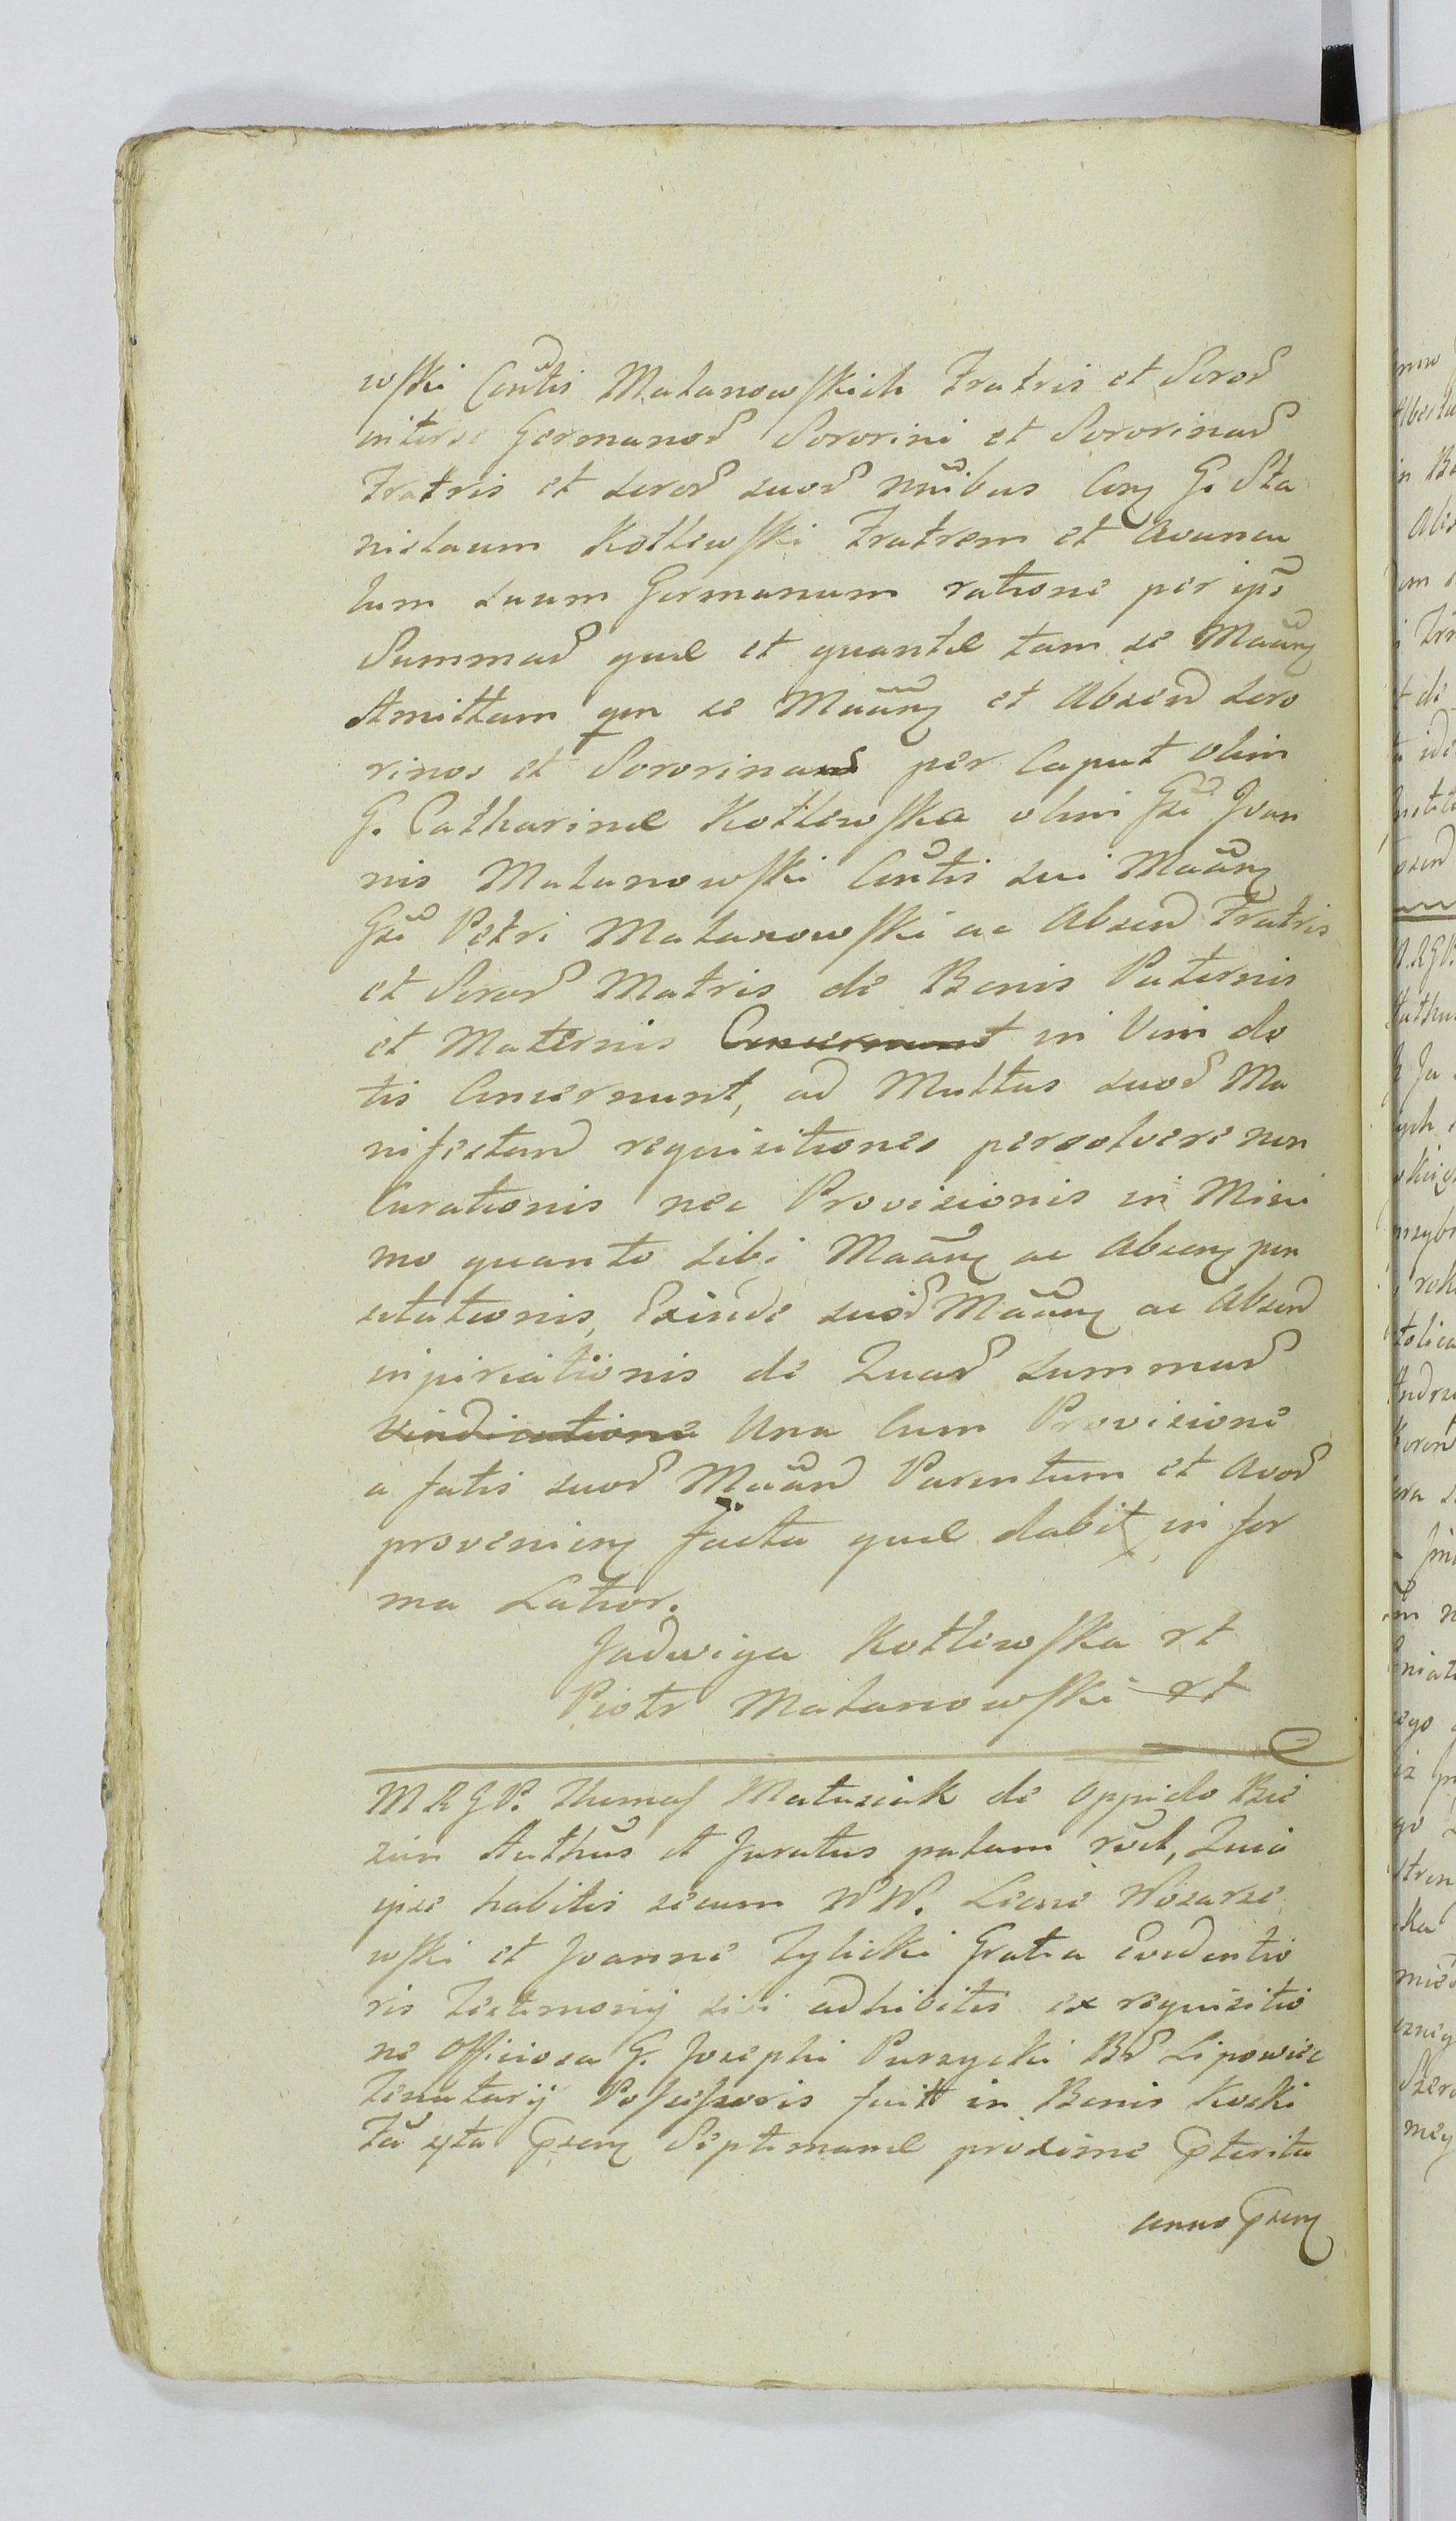 wski Conũtis Malanowskich Fratris et Soror
interse Germanor Sororini et Sororinar
Fratris et soror suor nũibus Con G. Sta
nislaum Kotlewski Fratrem et Avuncu
lum suum Germanum ratione per ips
Summar quæ et quantæ tam se Maãn
Amittam qm se Maãn et Absen soro
rinos et Sororinar per Caput olim
G. Catharinæ Kotlewska olim Gsi Joan
nis Malanowski Conũtis sui Maãn
Gsi Petri Malanowski ac Absen Fratris
et Soror Matris de Bonis Paternis
et Maternis Concernunt in Vim do
tis Concernunt, ad Multas suor Ma
nifestan requisitiones persolvere non
Curationis nec Provisionis in Mini
mo quanto sibi Maãn ac Absen pen
sitationis, Exinde suor Maãn ac Absen
injuriationis de Quar summar
vindicatione Una Cum Provisione
a fatis suor Maãn Parentum et Avor
provenien facta quæ dabit in for
ma Latior.
Jadwiga Kotlewska rt
Piotr Malanowski rt
M R G P. Thomas Matusiak de Oppido Bie
zun Authus et Juratus palam rvit, Quia
ipse habitis secum NN. Leone Wisarze
wski et Joanne Zylicki Gratia Evidentio
ris Testimonij sibi adhibitis ex requisitio
ne Officiosa G. Josephi Purzycki Br Lipowiec
Tenutarij Possessoris fuit in Bonis Kocki
Fa yta Pxen Septimanæ proxime Pterita
anno Pxen